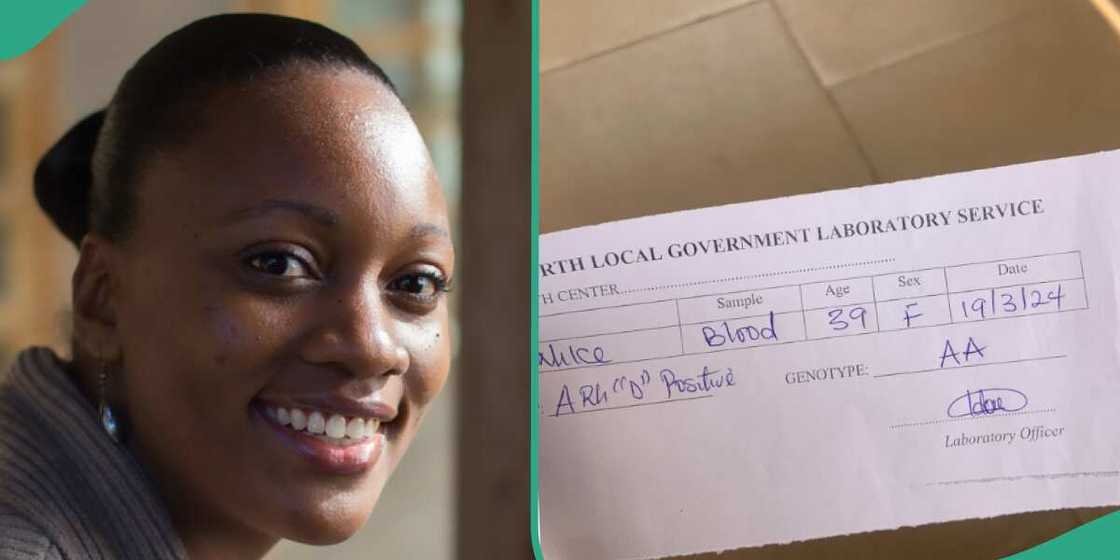 RTH LOCAL GOVERNMENT LABORATORY SERVICE
TH CENTER
Sample Age Sex Date
Blood 39 F 19/3/24
ARh "D" Positive GENOTYPE: AA
Laboratory Officer